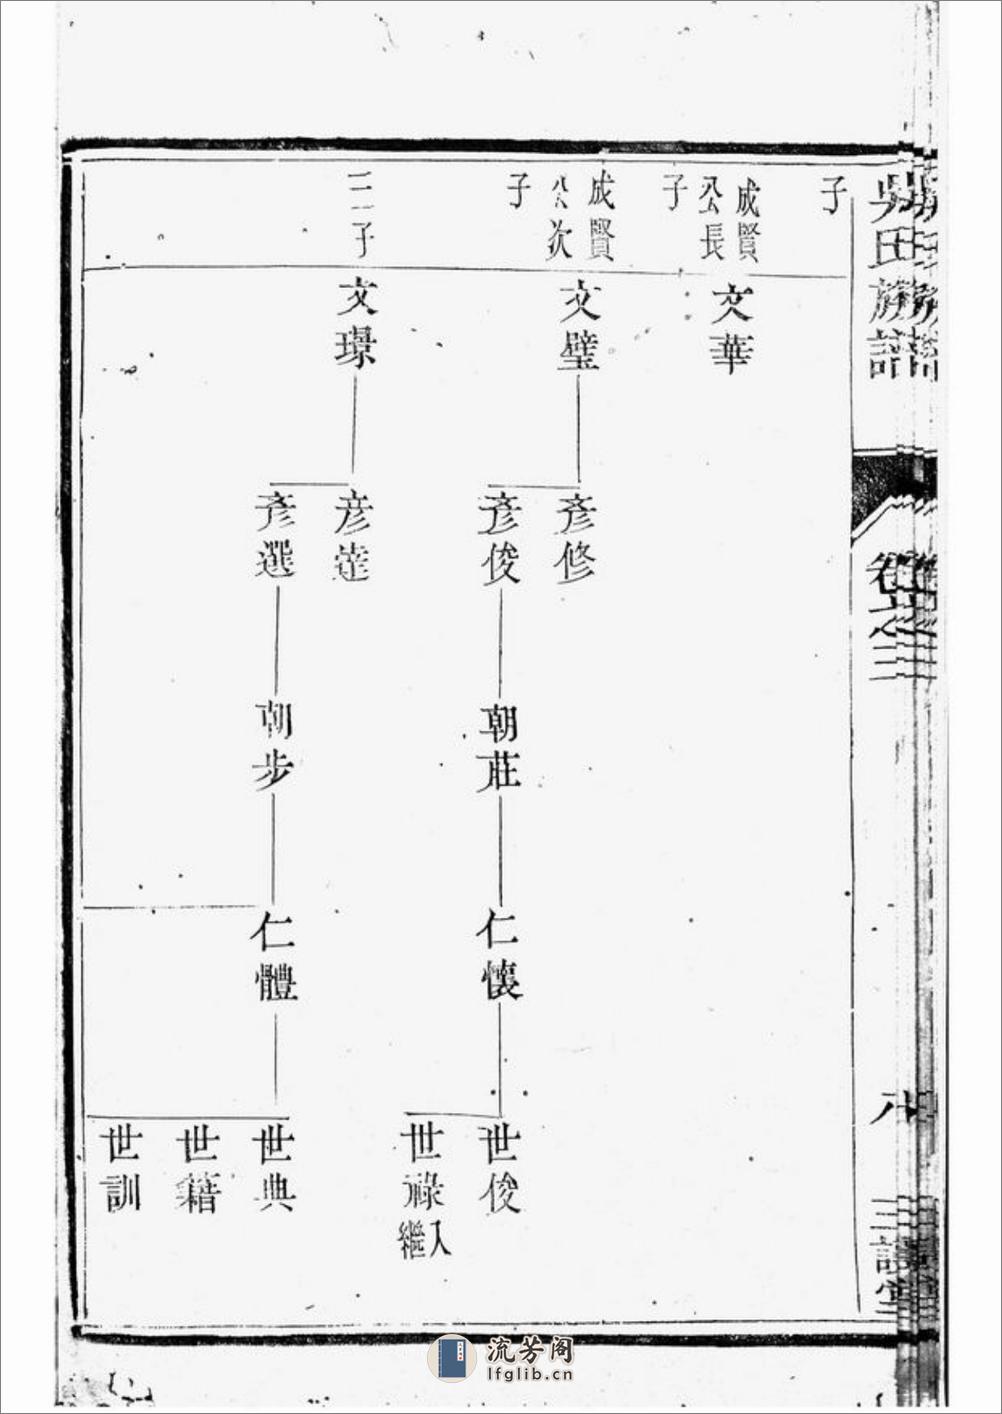 吳氏族譜
卷之三
八
三讓堂
子
成賢公長子
文華
成賢公次子
文璧
彥修
彥俊
朝莊
仁懷
世俊
世祿入繼
三子
文璟
彥達
彥選
朝步
仁體
世典
世籍
世訓
流芳阁
lfglib.cn